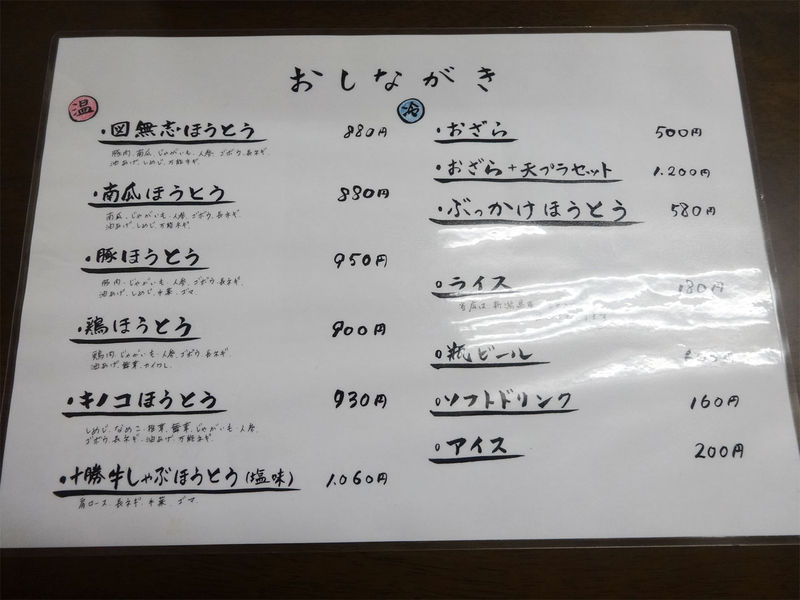 おしながき
温
・図無志ほうとう 880円
豚肉、南瓜、じゃがいも、人参、ゴボウ、長ネギ、
油あげ、しめじ、万能ネギ、
・南瓜ほうとう 880円
南瓜、じゃがいも、人参、ゴボウ、長ネギ、
油あげ、しめじ、万能ネギ、
・豚ほうとう 950円
豚肉、じゃがいも、人参、ゴボウ、長ネギ、
油あげ、しめじ、水菜、ゴマ、
・鶏ほうとう 900円
鶏肉、じゃがいも、人参、ゴボウ、長ネギ、
油あげ、舞茸、カイワレ、
・キノコほうとう 930円
しめじ、なめこ、椎茸、舞茸、じゃがいも、人参、
ゴボウ、長ネギ、油あげ、万能ネギ、
・十勝牛しゃぶほうとう(塩味) 1.060円
肩ロース、長ネギ、水菜、ゴマ、
冷
・おざら 500円
・おざら+天プラセット 1.200円
・ぶっかけほうとう 580円
・ライス 180円
当店は 新潟県産
・瓶ビール
・ソフトドリンク 160円
・アイス 200円